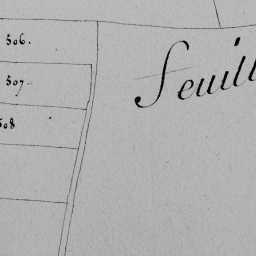 506.
507
508
Feuill